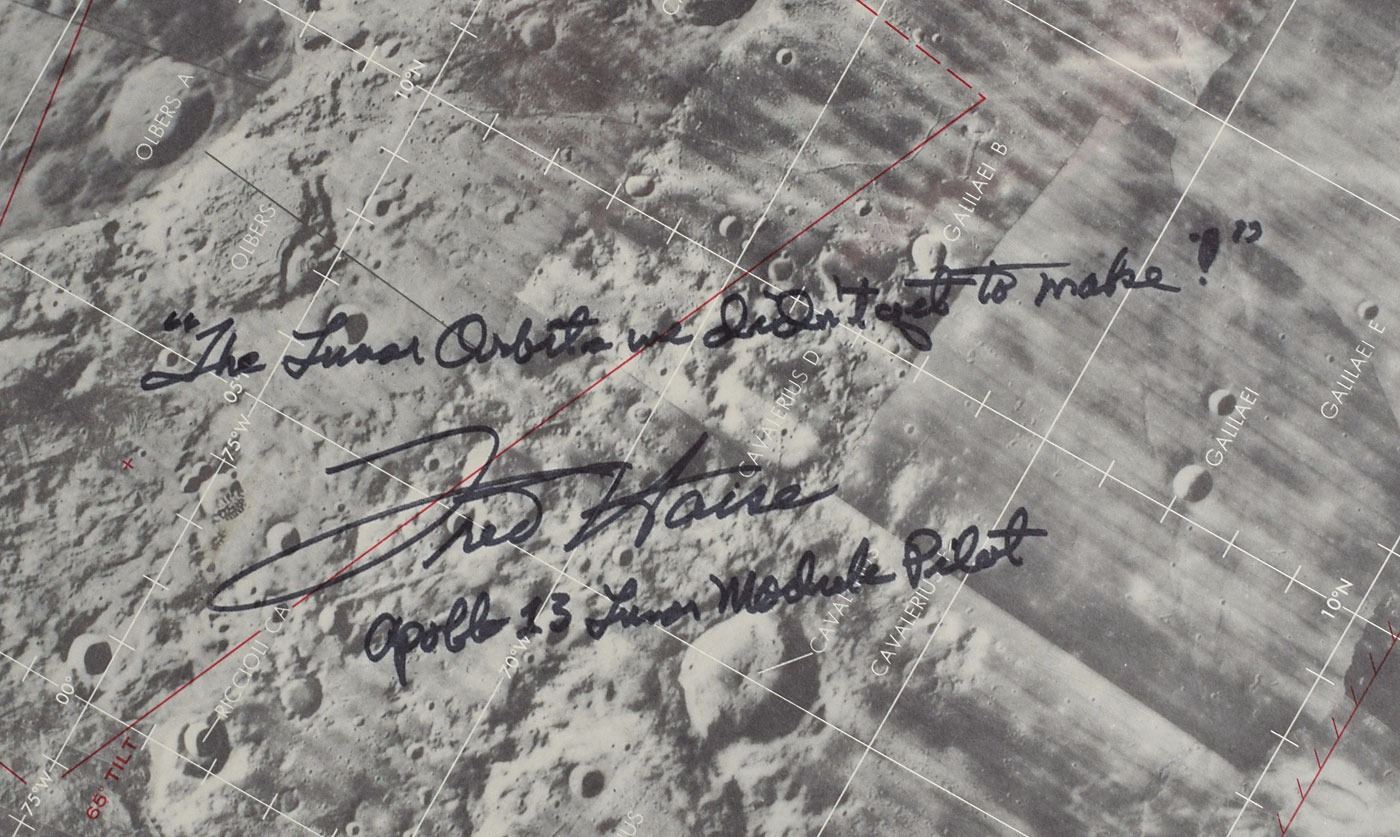 OLBERS A
10°N
OLBERS
GALILAEI B
"The Lunar Orbits we didn't get to make!"
05°
75°W
CAVALERIUS D
GALILAEI
GALILAEI E
Fred Haise
Apollo 13 Lunar Module Pilot
10°N
CAVALERIUS
70°W
RICCIOLI CA
00°
65° TILT
75°W